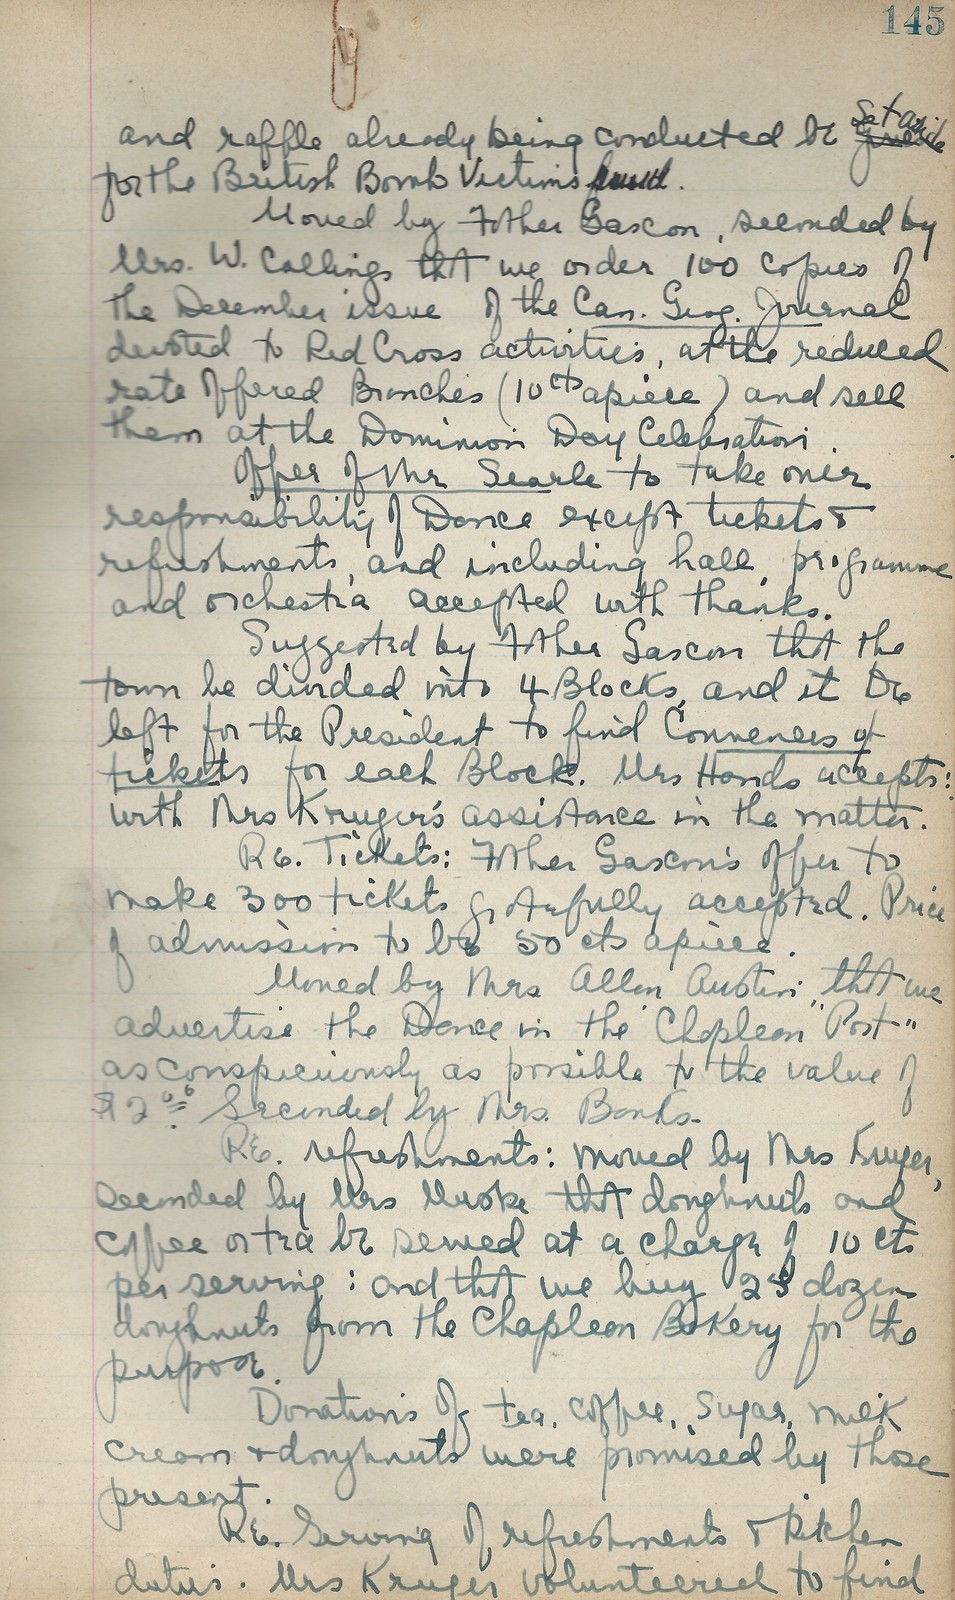 145
and raffle already being conducted be set aside
for the British Bomb Victims fund.
Moved by Father Gascon, seconded by
Mrs. W. Collings that we order 100 copies of
the December issue of the Can. Geog. Journal
devoted to Red Cross activities, at the reduced
rate offered Branches (10cts apiece) and sell
them at the Dominion Day Celebration
Offer of Mr Searle to take over
responsibility of Dance except tickets &
refreshments, and including hall, programme
and orchestra accepted with thanks.
Suggested by Father Gascon that the
town be divided into 4 Blocks, and it be
left for the President to find Conveners of
tickets for each Block. Mrs Hands accepts:
with Mrs Kruger's assistance in the matter.
Re. Tickets: Father Gascon's offer to
make 300 tickets gratefully accepted. Price
of admission to be 50 cts apiece.
Moved by Mrs Allan Austin, that we
advertise the Dance in the "Chapleau Post"
as conspicuously as possible to the value of
$2.00 Seconded by Mrs. Banks.
Re. refreshments: moved by Mrs Kruger,
seconded by Mrs that doughnuts and
coffee or tea be served at a charge of 10 cts
per serving: and that we buy dozen
doughnuts from the Chapleau Bakery for the
purpose.
Donations of tea, coffee, sugar, milk
cream & doughnuts were promised by those
present.
Re. Serving of refreshments & kitchen
duties. Mrs Kruger volunteered to find